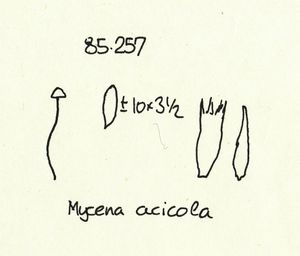 85.257
±10×3½
Mycena acicola